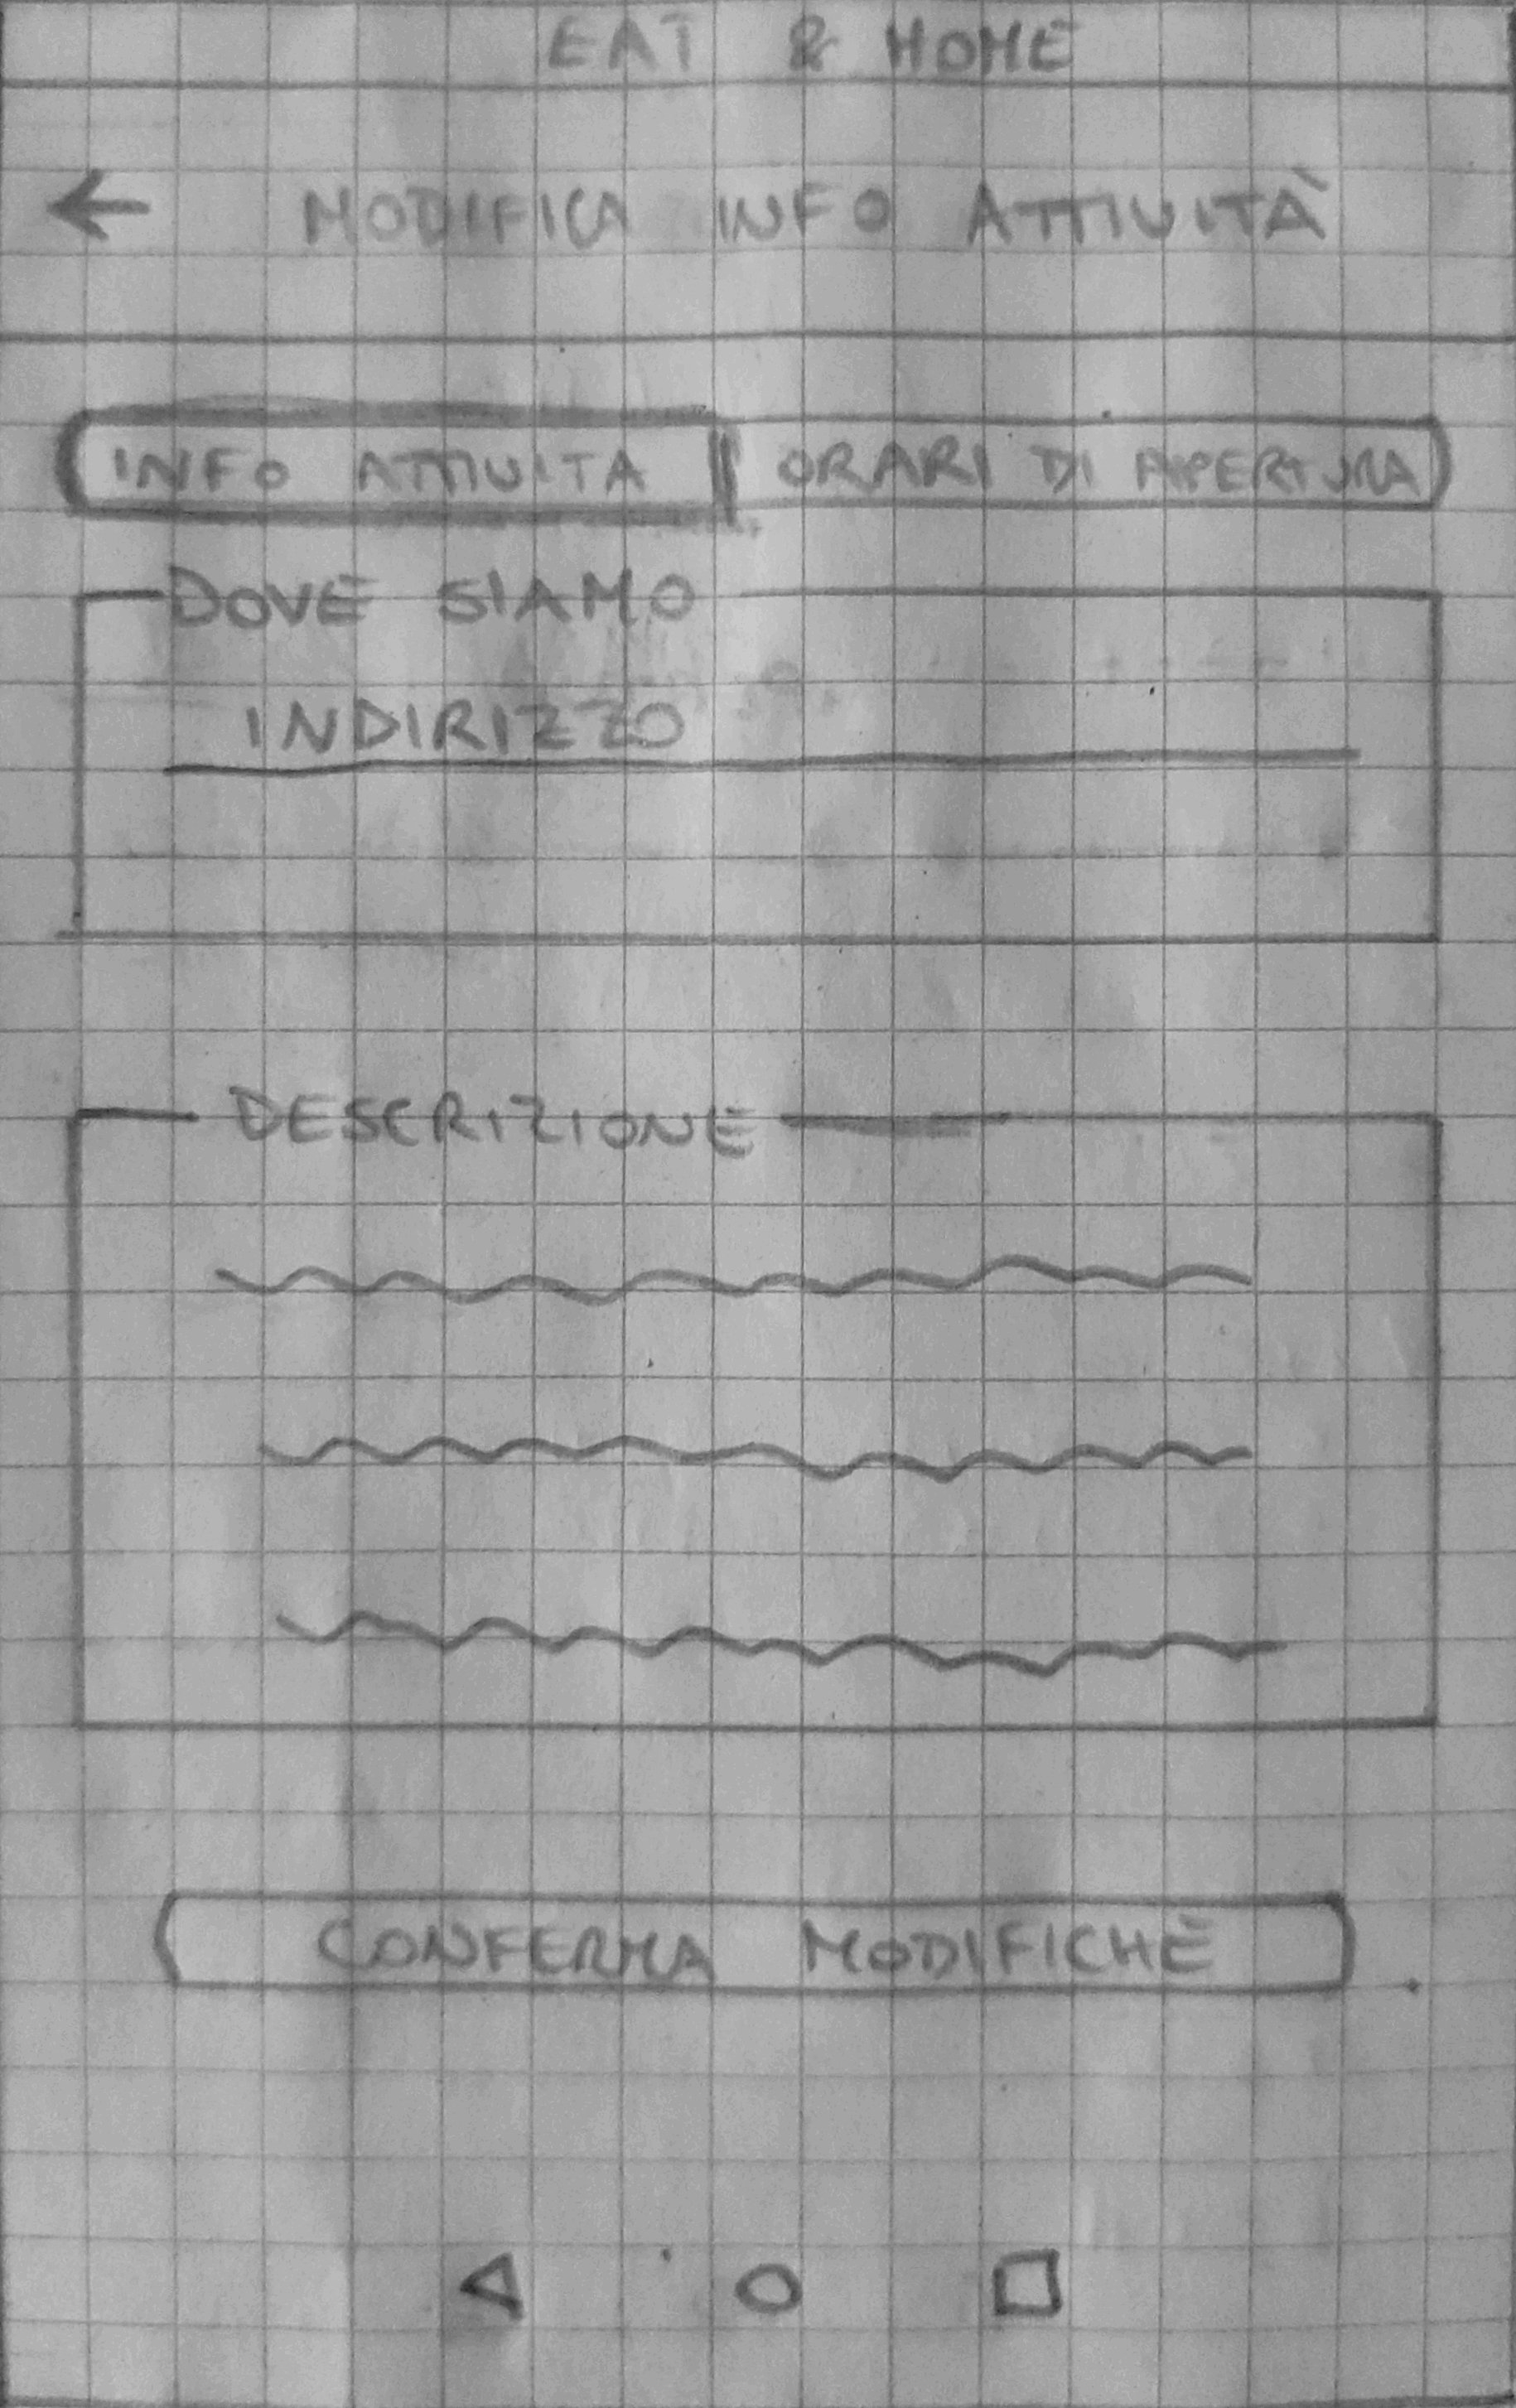 EAT & HOME
MODIFICA INFO ATTIVITÀ
INFO ATTIVITA
ORARI DI APERTURA
DOVE SIAMO
INDIRIZZO
DESCRIZIONE
CONFERMA MODIFICHE